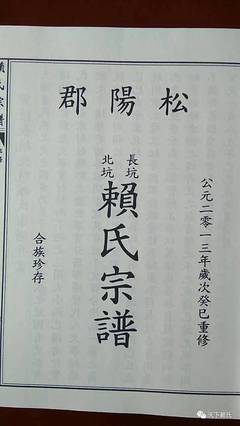 松陽郡
公元二零一三年歲次癸巳重修
長坑
北坑
賴氏宗譜
合族珍存
賴氏宗譜
天下赖氏